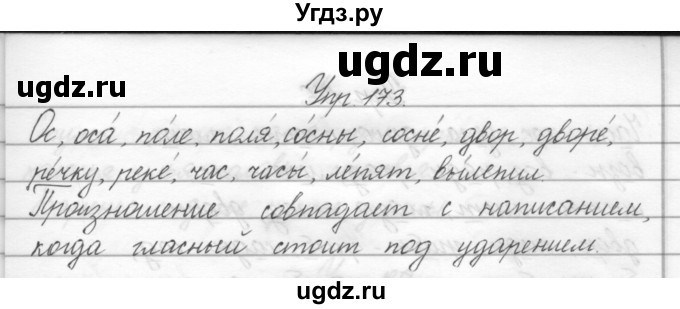 Угдз.ру
ugdz.ru
ugdz.ru
Упр. 173.
Ос, оса́, по́ле, поля́, со́сны, сосне́, двор, дворе́,
ре́чку, реке́, час, часы́, ле́пят, вы́лепил
Произношение совпадает с написанием,
когда гласный стоит под ударением.
ugdz.ru